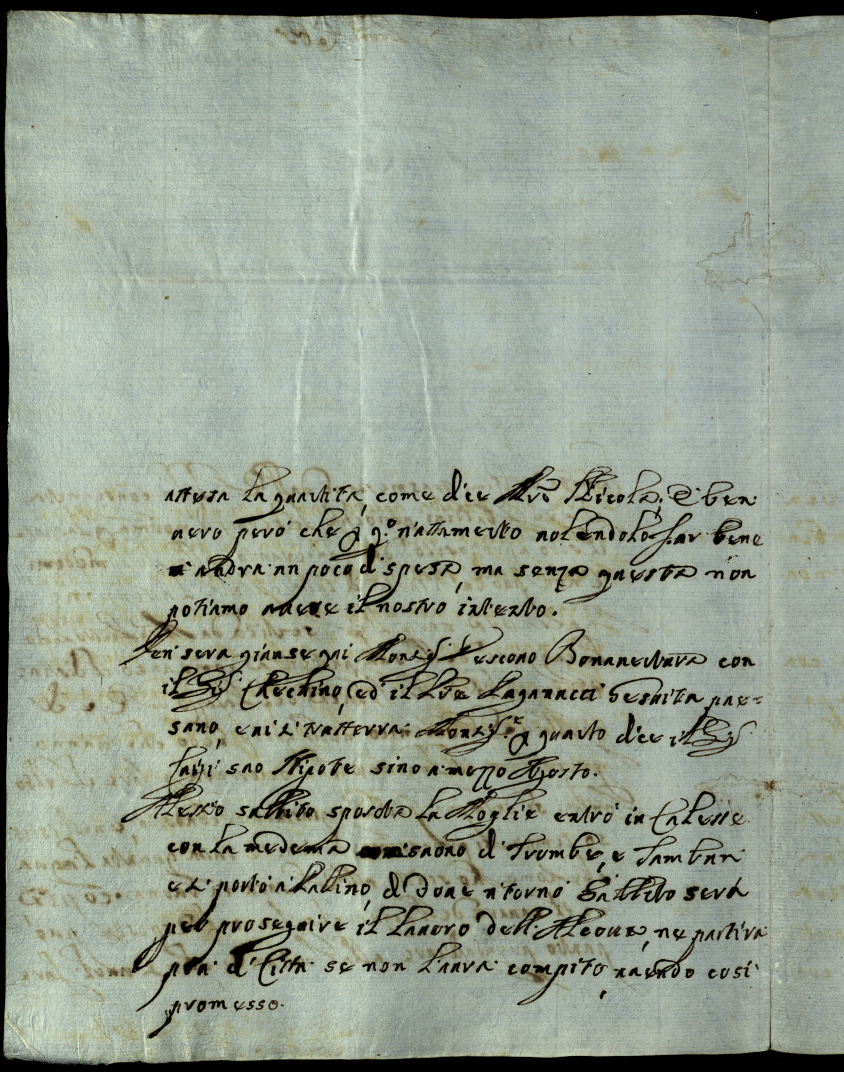 attesa la quantità, come dice Mrō Nicola; È ben
vero però che p̱ q.º riattamento volendolo far bene
vi andrà un poco di spesa, ma senza questa non
potiamo avere il nostro intento.
Ieri sera giunse qui Mons.r Vescovo Bonaventura con
il Sig.r Checchino, ed il Pre Paganucci Gesuita pae=
sano, e vi si tratterrà Mons.re p̱ quanto dice il Sig.r
suo Nipote sino a mezzo Agosto.
Alessio subbito sposata la Moglie entrò in Calesse
con la medema suono di Trombe, e Tamburi
e si portò a di dove ritornò subbito será
per proseguire il lavoro dell'Alcova, ne partirà
più di Città se non l'avrà compito avendo così
promesso.